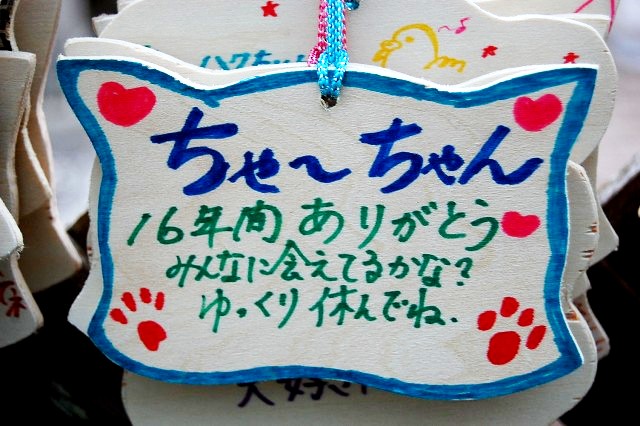 ちゃ〜ちゃん
16年間ありがとう
みんなに会えてるかな?
ゆっくり休んでね.